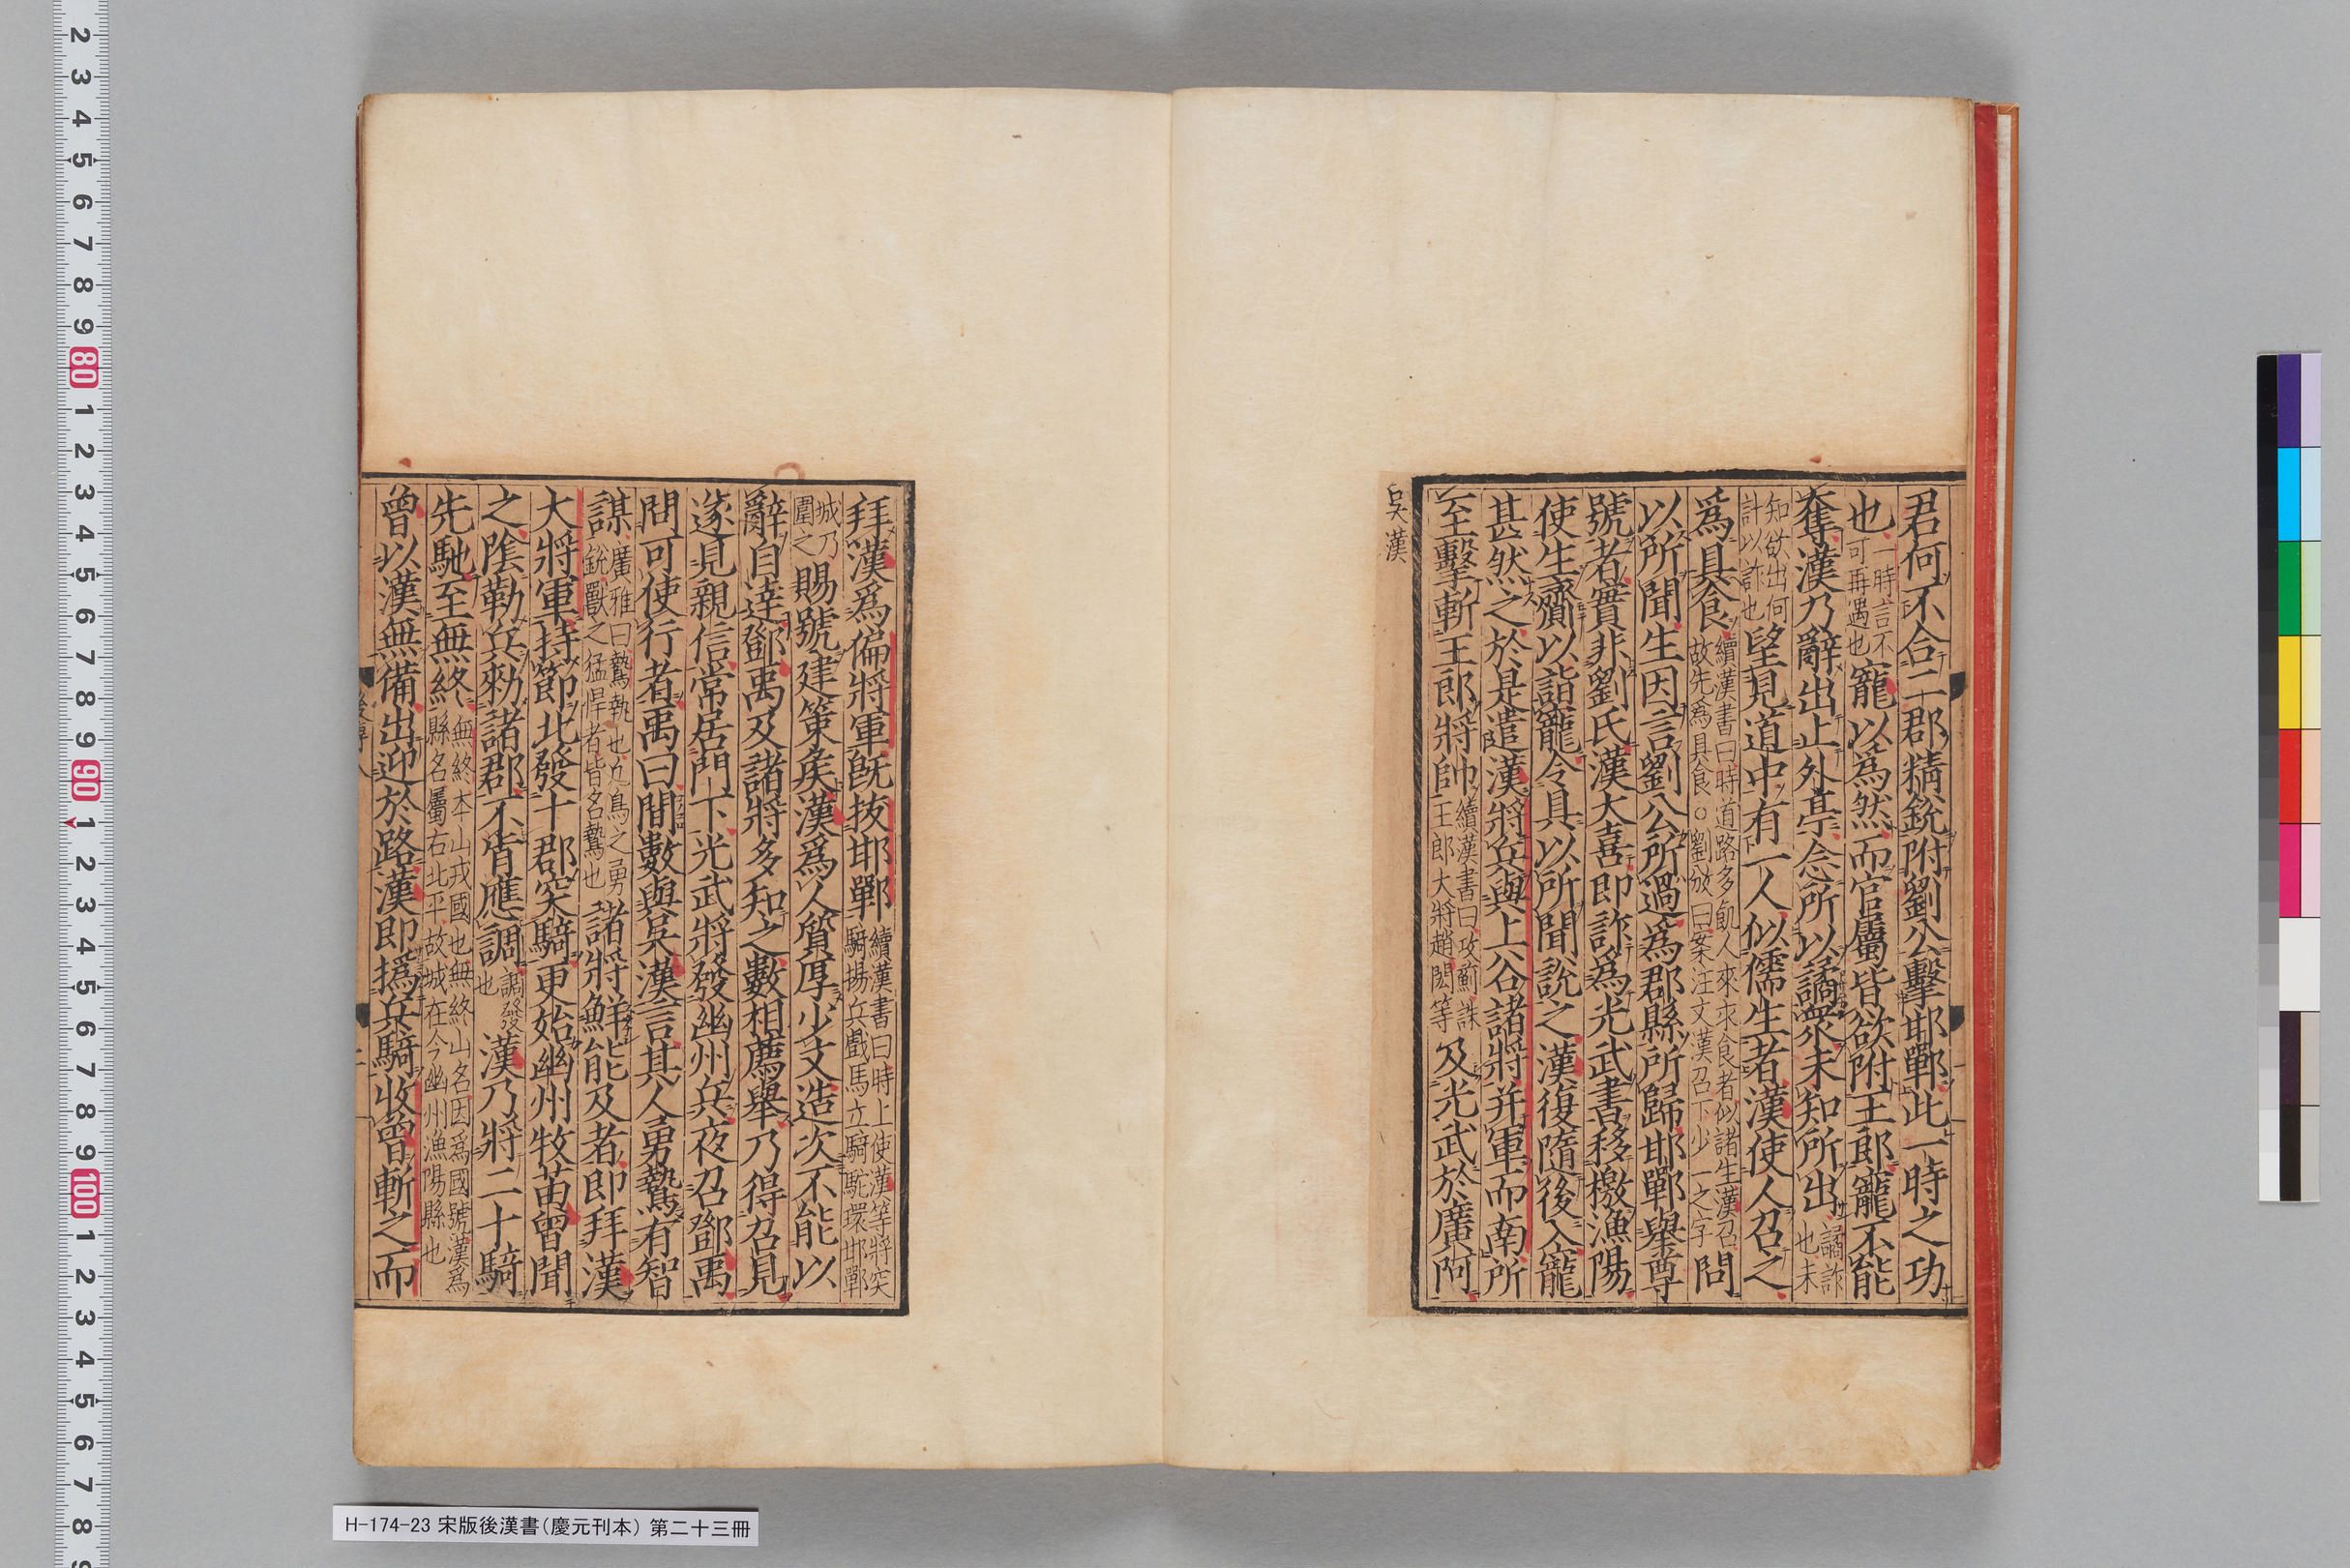 君何不合二郡精銳附劉公擊邯鄲此一時之功
也一時言不可再遇也寵以爲然而官屬皆欲附王郎寵不能
奪漢乃辭出止外亭念所以譎衆未知所出譎詐也未
知欲出何計以詐也望見道中有一人似儒生者漢使人召之
爲具食續漢書曰時道路多飢人來求食者似諸生漢召故先爲具食○劉攽曰案注文漢召下少一之字問
以所聞生因言劉公所過爲郡縣所歸邯鄲舉尊
號者實非劉氏漢大喜即詐爲光武書移檄漁陽
使生齎以詣寵令具以所聞說之漢復隨後入寵
甚然之於是遣漢將兵與上谷諸將并軍而南所
至擊斬王郎將帥續漢書曰攻薊誅王郎大將趙閎等及光武於廣阿
吳漢
拜漢爲偏將軍旣拔邯鄲續漢書曰時上使漢等將突騎揚兵戲馬立騎馳環邯鄲
城乃圍之賜號建策矦漢爲人質厚少文造次不能以
辭自達鄧禹及諸將多知之數相薦舉乃得召見
遂見親信常居門下光武將發幽州兵夜召鄧禹
問可使行者禹曰間數與吳漢言其人勇鷙有智
謀廣雅曰鷙執也凡鳥之勇銳獸之猛悍者皆名鷙也諸將鮮能及者即拜漢
大將軍持節北發十郡突騎更始幽州牧苗曾聞
之陰勒兵勑諸郡不肯應調調發也漢乃將二十騎
先馳至無終無終本山戎國也無終山名因爲國號漢爲縣名屬右北平故城在今幽州漁陽縣也
曾以漢無備出迎於路漢即撝兵騎收曾斬之而
2
3
4
5
6
7
8
9
80
1
2
3
4
5
6
7
8
9
90
1
2
3
4
5
6
7
8
9
100
1
2
3
4
5
6
7
8
H-174-23 宋版後漢書(慶元刊本) 第二十三冊